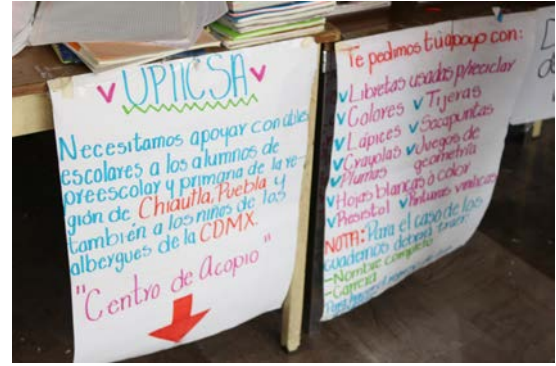 UPIICSA
Necesitamos apoyar con útiles
escolares a los alumnos de
preescolar y primaria de la re-
gión de Chiautla, Puebla y
también a los niños de los
albergues de la CDMX.
"Centro de Acopio"
Te pedimos tú apoyo con:
Libretas usadas p/reciclar
Colores Tijeras
Lápices Sacapuntas
Crayolas Juegos de
Plumas geometría
Hojas blancas o color
Resistol Pinturas vinílicas
NOTA: Para el caso de los
cuadernos deberá traer:
-Nombre completo
-Carrera